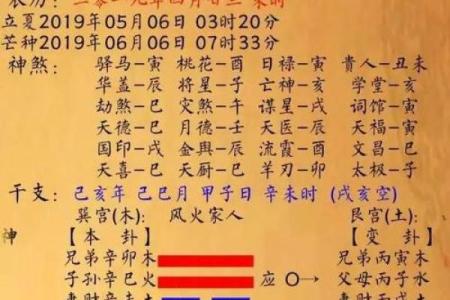 农历：二零一九年四月廿三 未时
立夏2019年05月06日 03时20分
芒种2019年06月06日 07时33分
神煞：驿马-寅 桃花-酉 日禄-寅 貴人-丑未
华盖-辰 将星-子 亡神-亥 学堂-亥
劫煞-巳 灾煞-午 谋星-戌 词馆-寅
天德-巳 月德-壬 天医-辰 天福-寅
国印-戌 金舆-辰 流霞-酉 文昌-巳
天喜-巳 天厨-巳 羊刃-卯 太极-子
干支：己亥年 己巳月 甲子日 辛未时 (戌亥空)
巽宫(木)：风火家人 艮宫(土)：
神 【本卦】 【变卦】
兄弟辛卯木 兄弟丙寅木
子孙辛巳火 应 O→ 父母丙子水
妻财辛未土